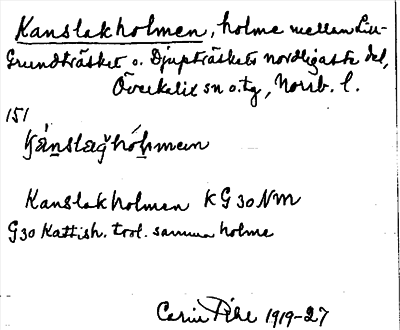 Kanslakholmen, holme mellan Lill-
Grundträsket o. Djupträskets nordligaste del,
Överkalix sn o. tg, Norrb. l.
151
Kanslakholmen KG30NM
G30 Kattish. trol. samma holme
Carin Pihl 1919-27